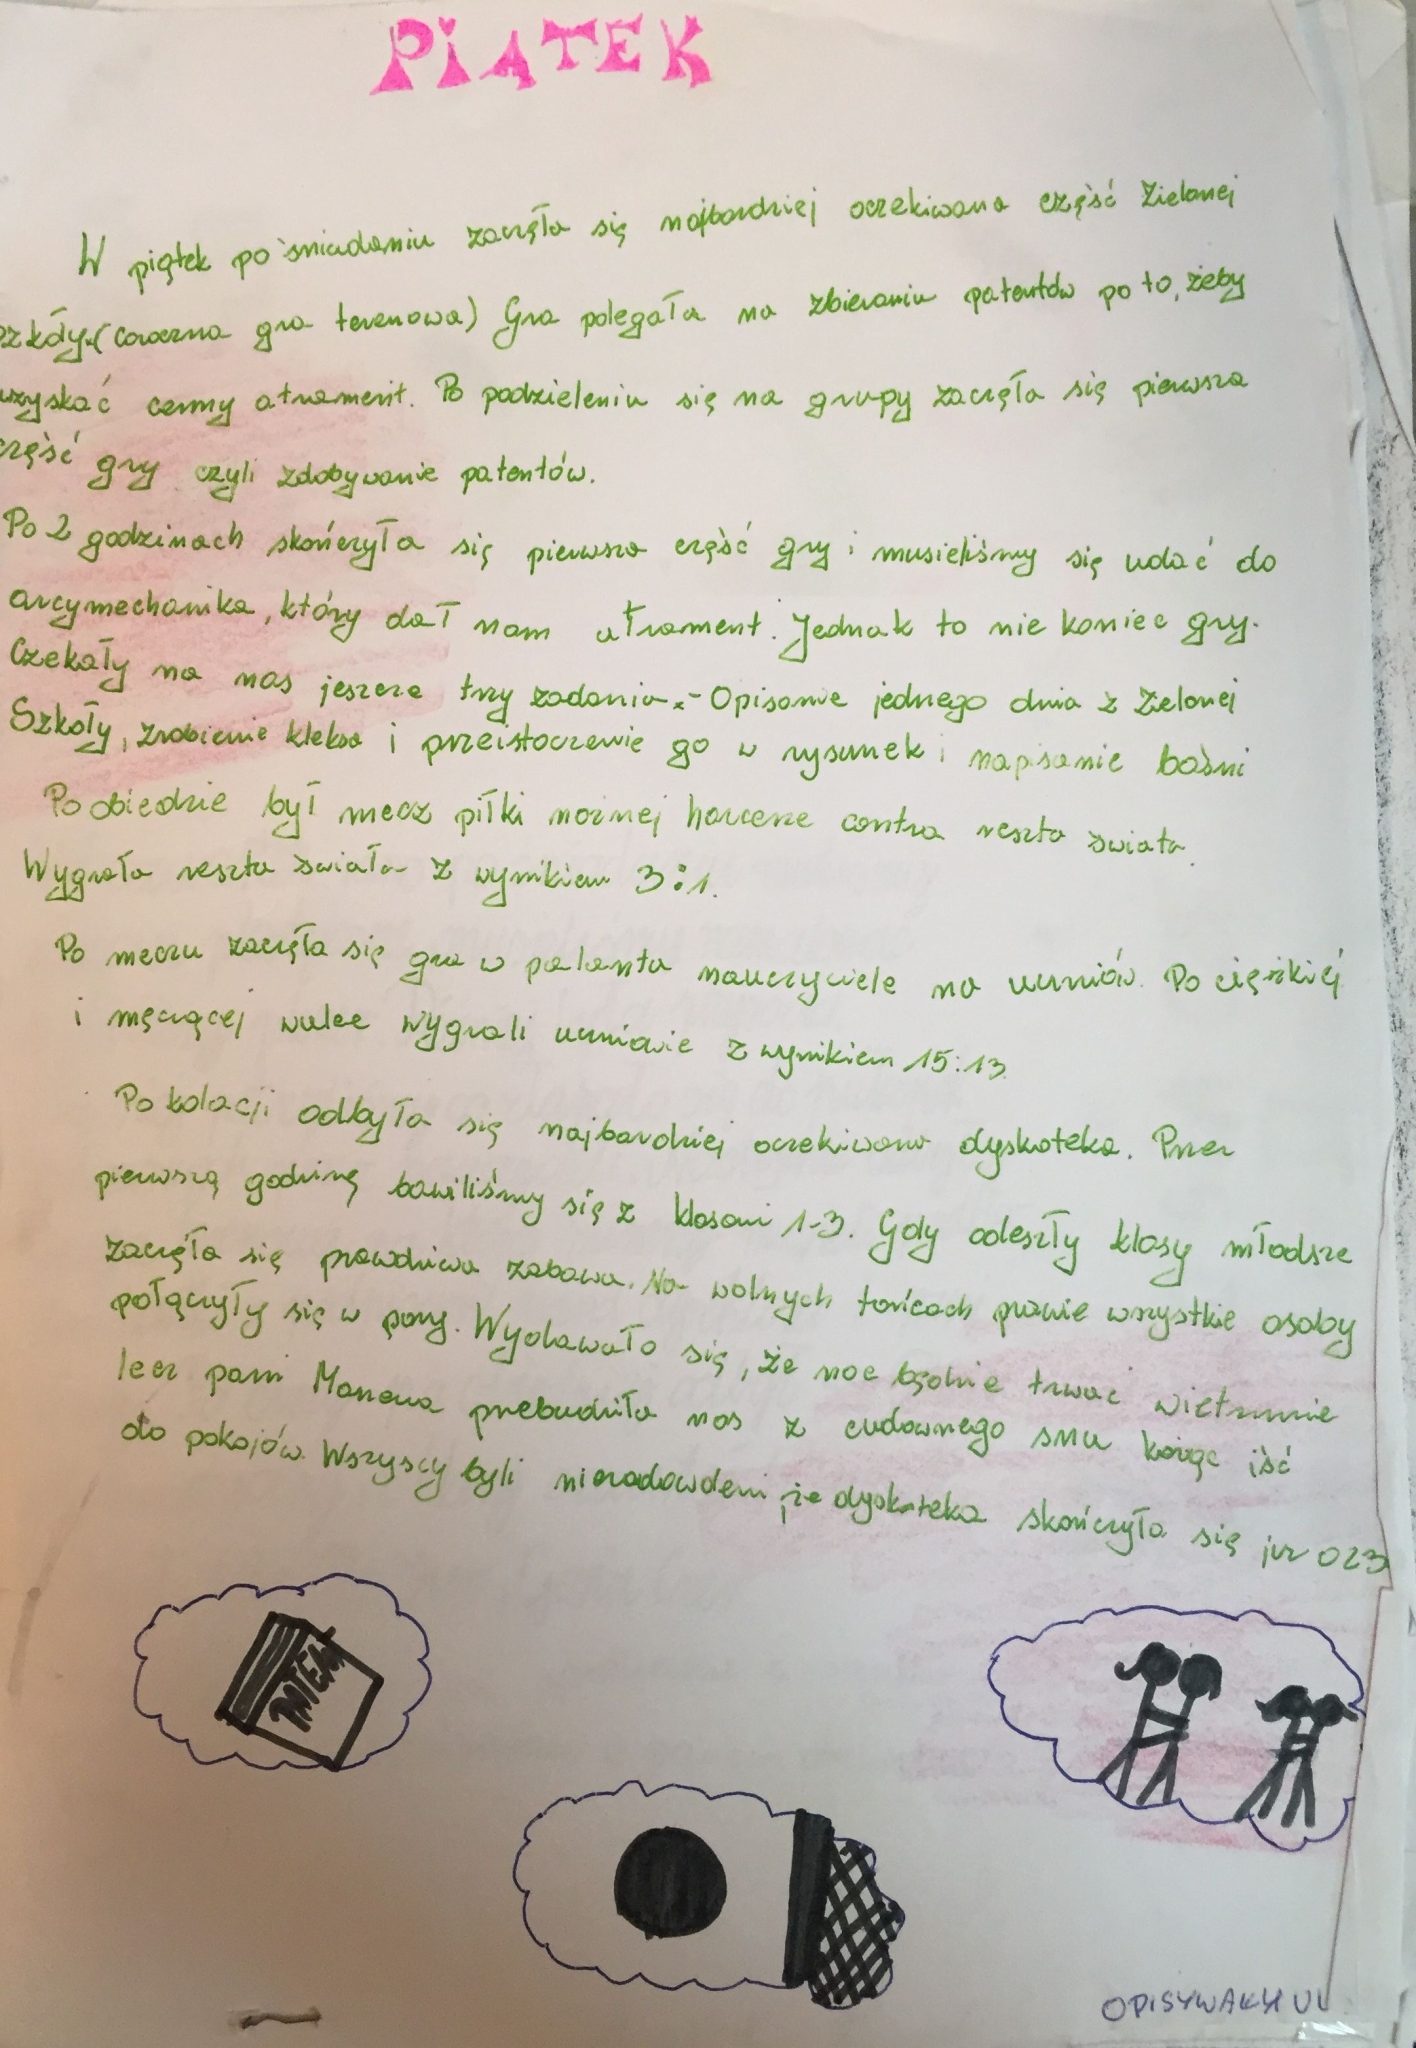 PIĄTEK
W piątek po śniadaniu zaczęła się najbardziej oczekiwana część Zielonej
szkoły. (coroczna gra terenowa) Gra polegała na zbieraniu patentów po to, żeby
uzyskać cenny atrament. Po podzieleniu się na grupy zaczęła się pierwsza
część gry czyli zdobywanie patentów.
Po 2 godzinach skończyła się pierwsza część gry i musieliśmy się udać do
arcymechanika, który dał nam atrament. Jednak to nie koniec gry.
Czekały na nas jeszcze trzy zadania:- Opisanie jednego dnia z Zielonej
Szkoły, zrobienie kleksa i przeistoczenie go w rysunek i napisanie baśni
Po obiedzie był mecz piłki nożnej harcerze contra reszta świata.
Wygrała reszta świata z wynikiem 3:1.
Po meczu zaczęła się gra w palanta nauczyciele na uczniów. Po ciężkiej
i męczącej walce wygrali uczniowie z wynikiem 15:13
Po kolacji odbyła się najbardziej oczekiwana dyskoteka. Przez
pierwszą godzinę bawiliśmy się z klasami 1-3. Gdy odeszły klasy młodsze
zaczęła się prawdziwa zabawa. Na wolnych tańcach prawie wszystkie osoby
połączyły się w pary. Wydawało się, że noc będzie trwać wiecznie
lecz pani przebudziła nas z cudownego snu każąc iść
do pokojów. Wszyscy byli niezadowoleni, że dyskoteka skończyła się już o 23
PATENT